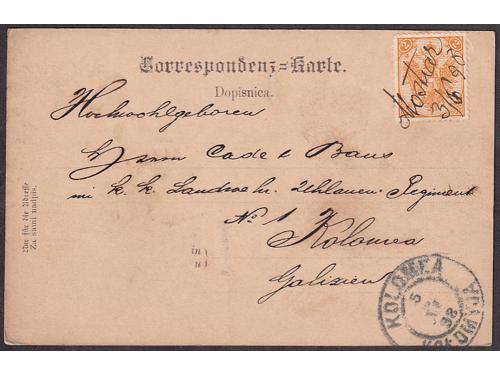 Correspondenz-Karte.
Dopisnica.
Mostar
3/6 98
Hochwohlgeboren
Herrn Cadet Baus
im k. k. Landwehr Uhlanen Regiment
No 1
Kolomea
Galizien
Nur für die Adresse
Za sami nadpis.
in
u
KOLOMEA
5
98